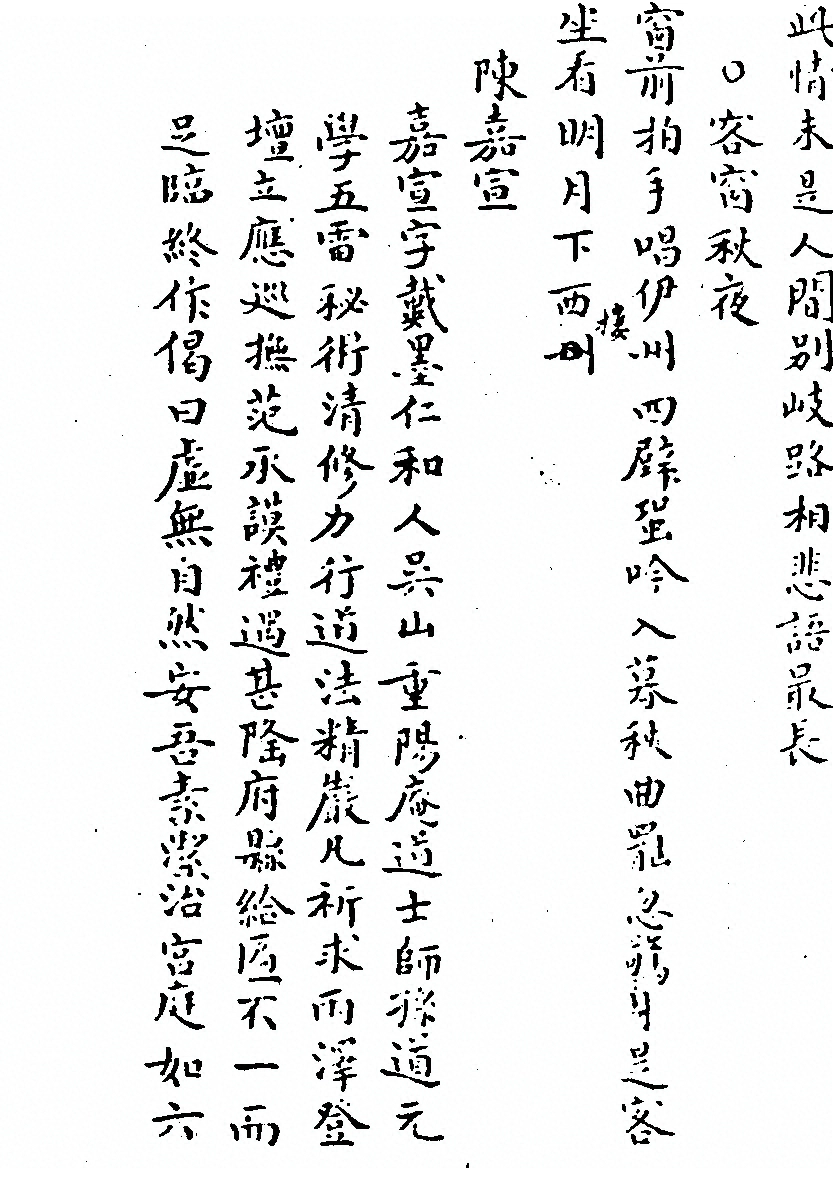 此情未是人間別岐路相悲語最長
○客窗秋夜
窗前拍手唱伊州四壁蛩吟入暮秋曲罷忽驚身是客
坐看明月下西樓
陳嘉宣
嘉宣字戴墨仁和人吳山重陽庵道士師孫道元
學五雷秘術清修力行道法精嚴凡祈求雨澤登
壇立應巡撫范承謨禮遇甚隆府縣給匾不一而
足臨終作偈曰虛無自然安吾素潔治宮庭如六